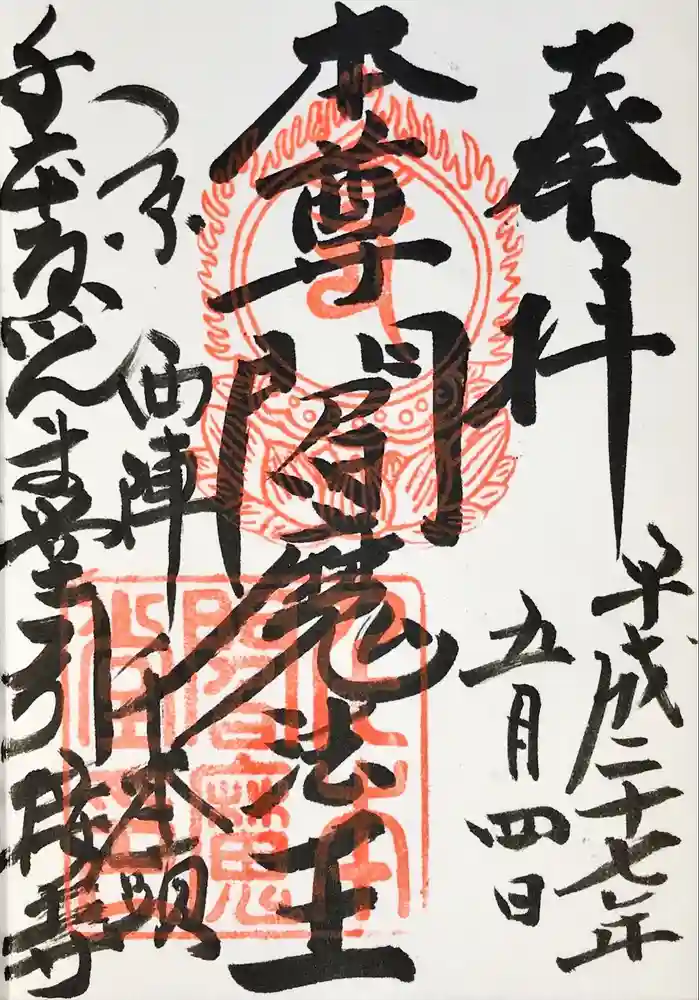 奉拝
平成二十七年
五月四日
本尊閻魔法王
西陣 千本
千本ゑんま堂引接寺